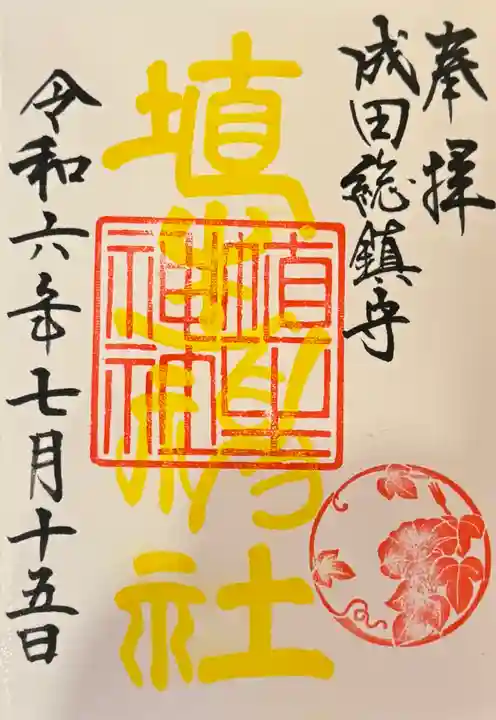 奉拝
成田総鎮守
埴生神社
埴生
神社
令和六年七月十五日